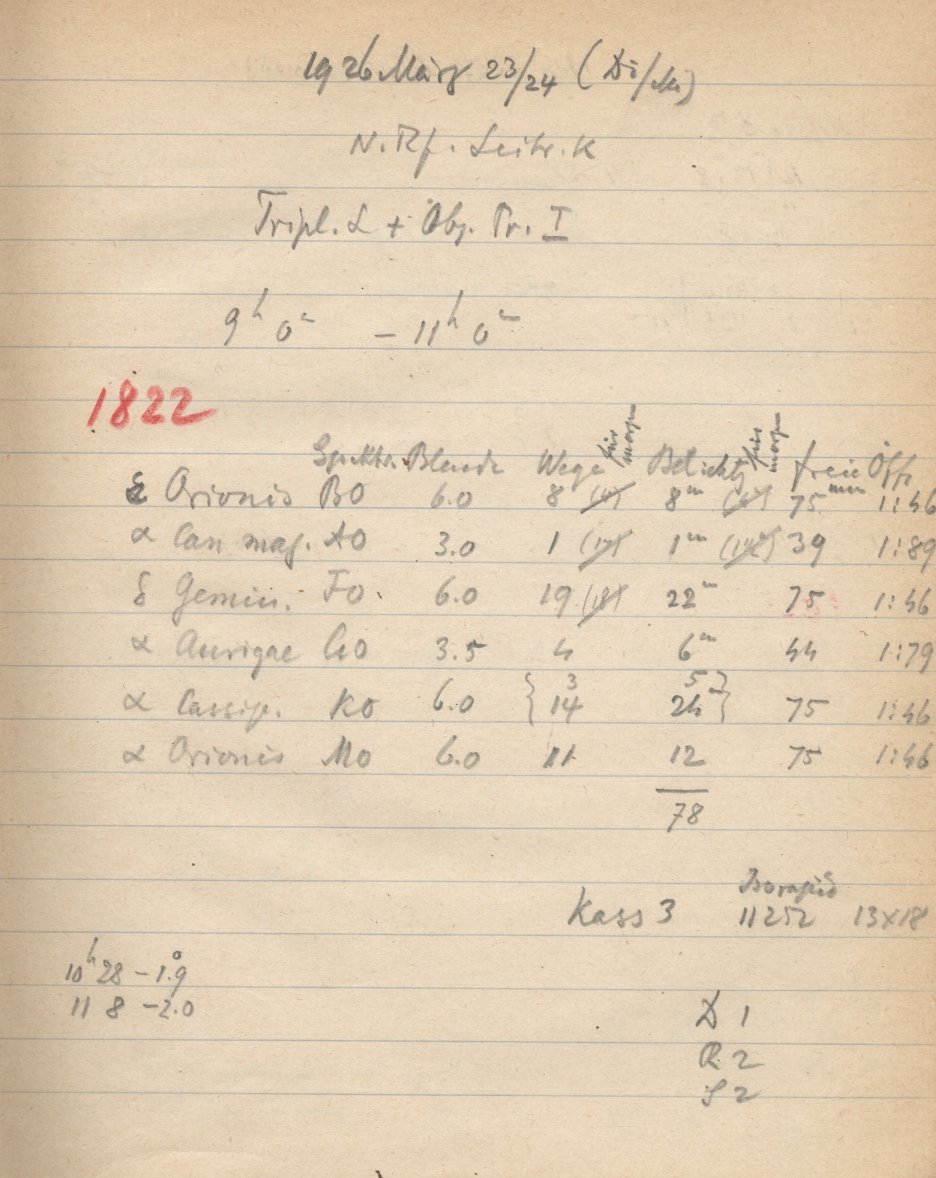 1926 März 23/24 (Di/Mi)
N. Rf. Leitr. K
Tripl. L + Obj. Pr. I
9h 0m - 11h 0m
1822
Spektr. Blende Wege für morgen Belichtg für morgen freie Öffn
ε Orionis B0 6.0 8 8m 75mm 1:46
α Can maj. A0 3.0 1 1m 39 1:89
δ Gemin. F0 6.0 19 (18) 22m 75 1:46
α Aurigae G0 3.5 4 6m 44 1:79
3 5
α Cassip. K0 6.0 {14 24m} 75 1:46
α Orionis M0 6.0 11 12 75 1:46
78
Isorapid
Kass 3 11252 13x18
10h 28 -1.°9
11 8 -2.0
D 1
R 2
S 2